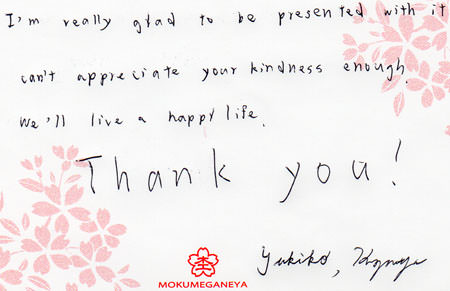 I'm really glad to be presented with it
can't appreciate your kindness enough.
We'll live a happy life.
Thank you!
Yukiko,
MOKUMEGANEYA